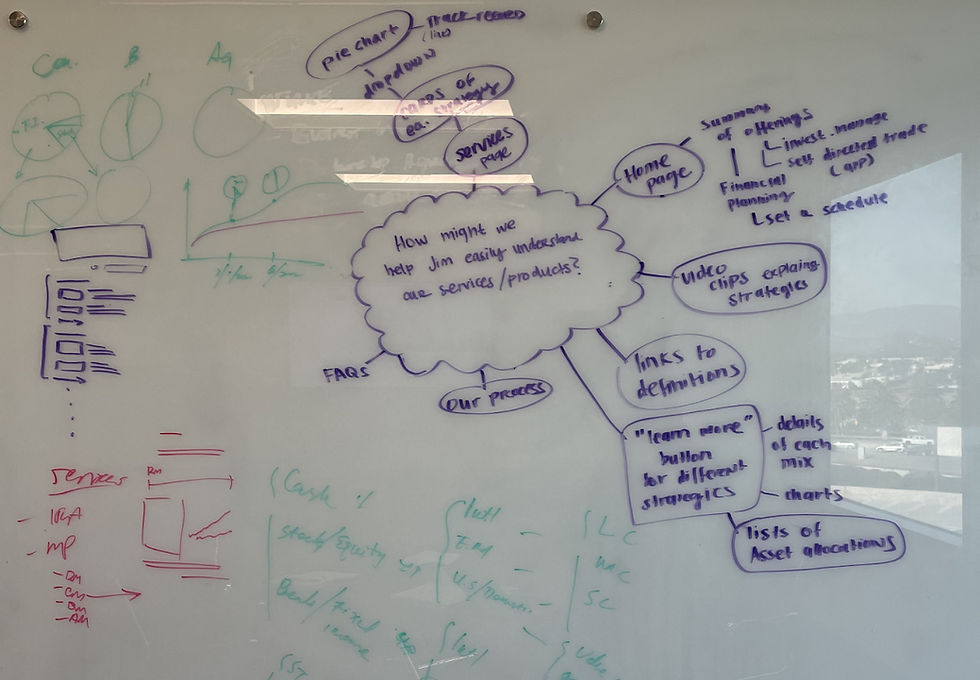 pie chart
Track record
dropdown
cards of
ea. strategy
services
page
Home
page
summary
of offerings
invest. manage
self directed trade
(app)
Financial
planning
set a schedule
How might we
help Jim easily understand
our services/products?
video
clips explaing
strategies
links to
definitions
FAQS
our process
"learn more"
button
for different
strategies
details
of each
mix
charts
lists of
Asset allocations
B
Ag
F.I.
Services
IRA
MP
Cash %
Stock/Equity
Bonds/Fixed
income
Int'l
E.M
LC
MC
SC
Int'l